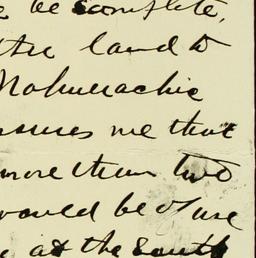 be complete,
the land to
Mohunachie
assures me that
more than two
would be of use
at the South